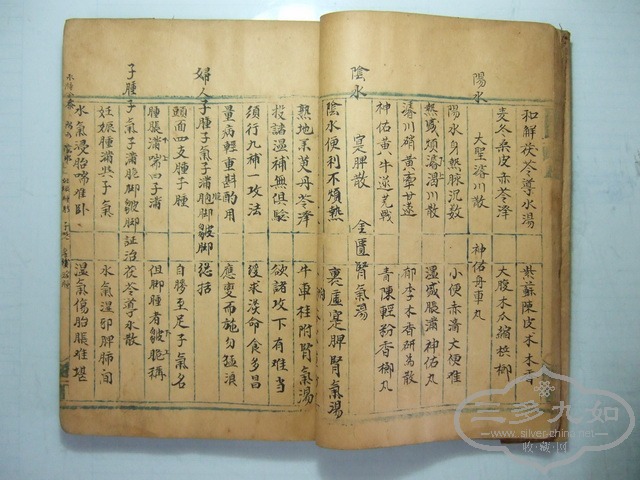 和鮮茯苓導水湯 紫蘇陳皮木木
麦冬桑皮赤苓澤 大腹木瓜縮檳榔
大聖濬川散 神佑舟車丸
陽水
陽水身熱脉沉数 小便赤濇大便难
熱盛煩渴濬川散 濕盛脹滿神佑丸
濬川硝黃牽甘遠 郁李木香研為散
神佑黄牛逆芫戟 青陳輕粉香榔丸
陰水
寔脾散 金匱腎氣湯
陰水便利不煩熱 裏虛寔脾腎氣湯
熟地茱萸丹苓澤 牛車桂附腎氣湯
投諸温補無俱驗 欲諸攻下有难当
須行九補一攻法 後求淡命食多昌
量病輕重斟酌用 應變而施勿猛浪
婦人子腫子氣子滿脆脚皺脚總括
頭面四支腫子腫 自膝至足子氣名
腫脹滿喘曰子滿 但脚腫者皺脆稱
子腫子氣子滿脆脚皺脚証治 茯苓導水散
妊娠腫滿共子氣 水氣湿邪脾肺间
水氣浸胎喘难卧 湿氣傷胎脹难堪
三多九如
www.silver-china.net
收·藏·网